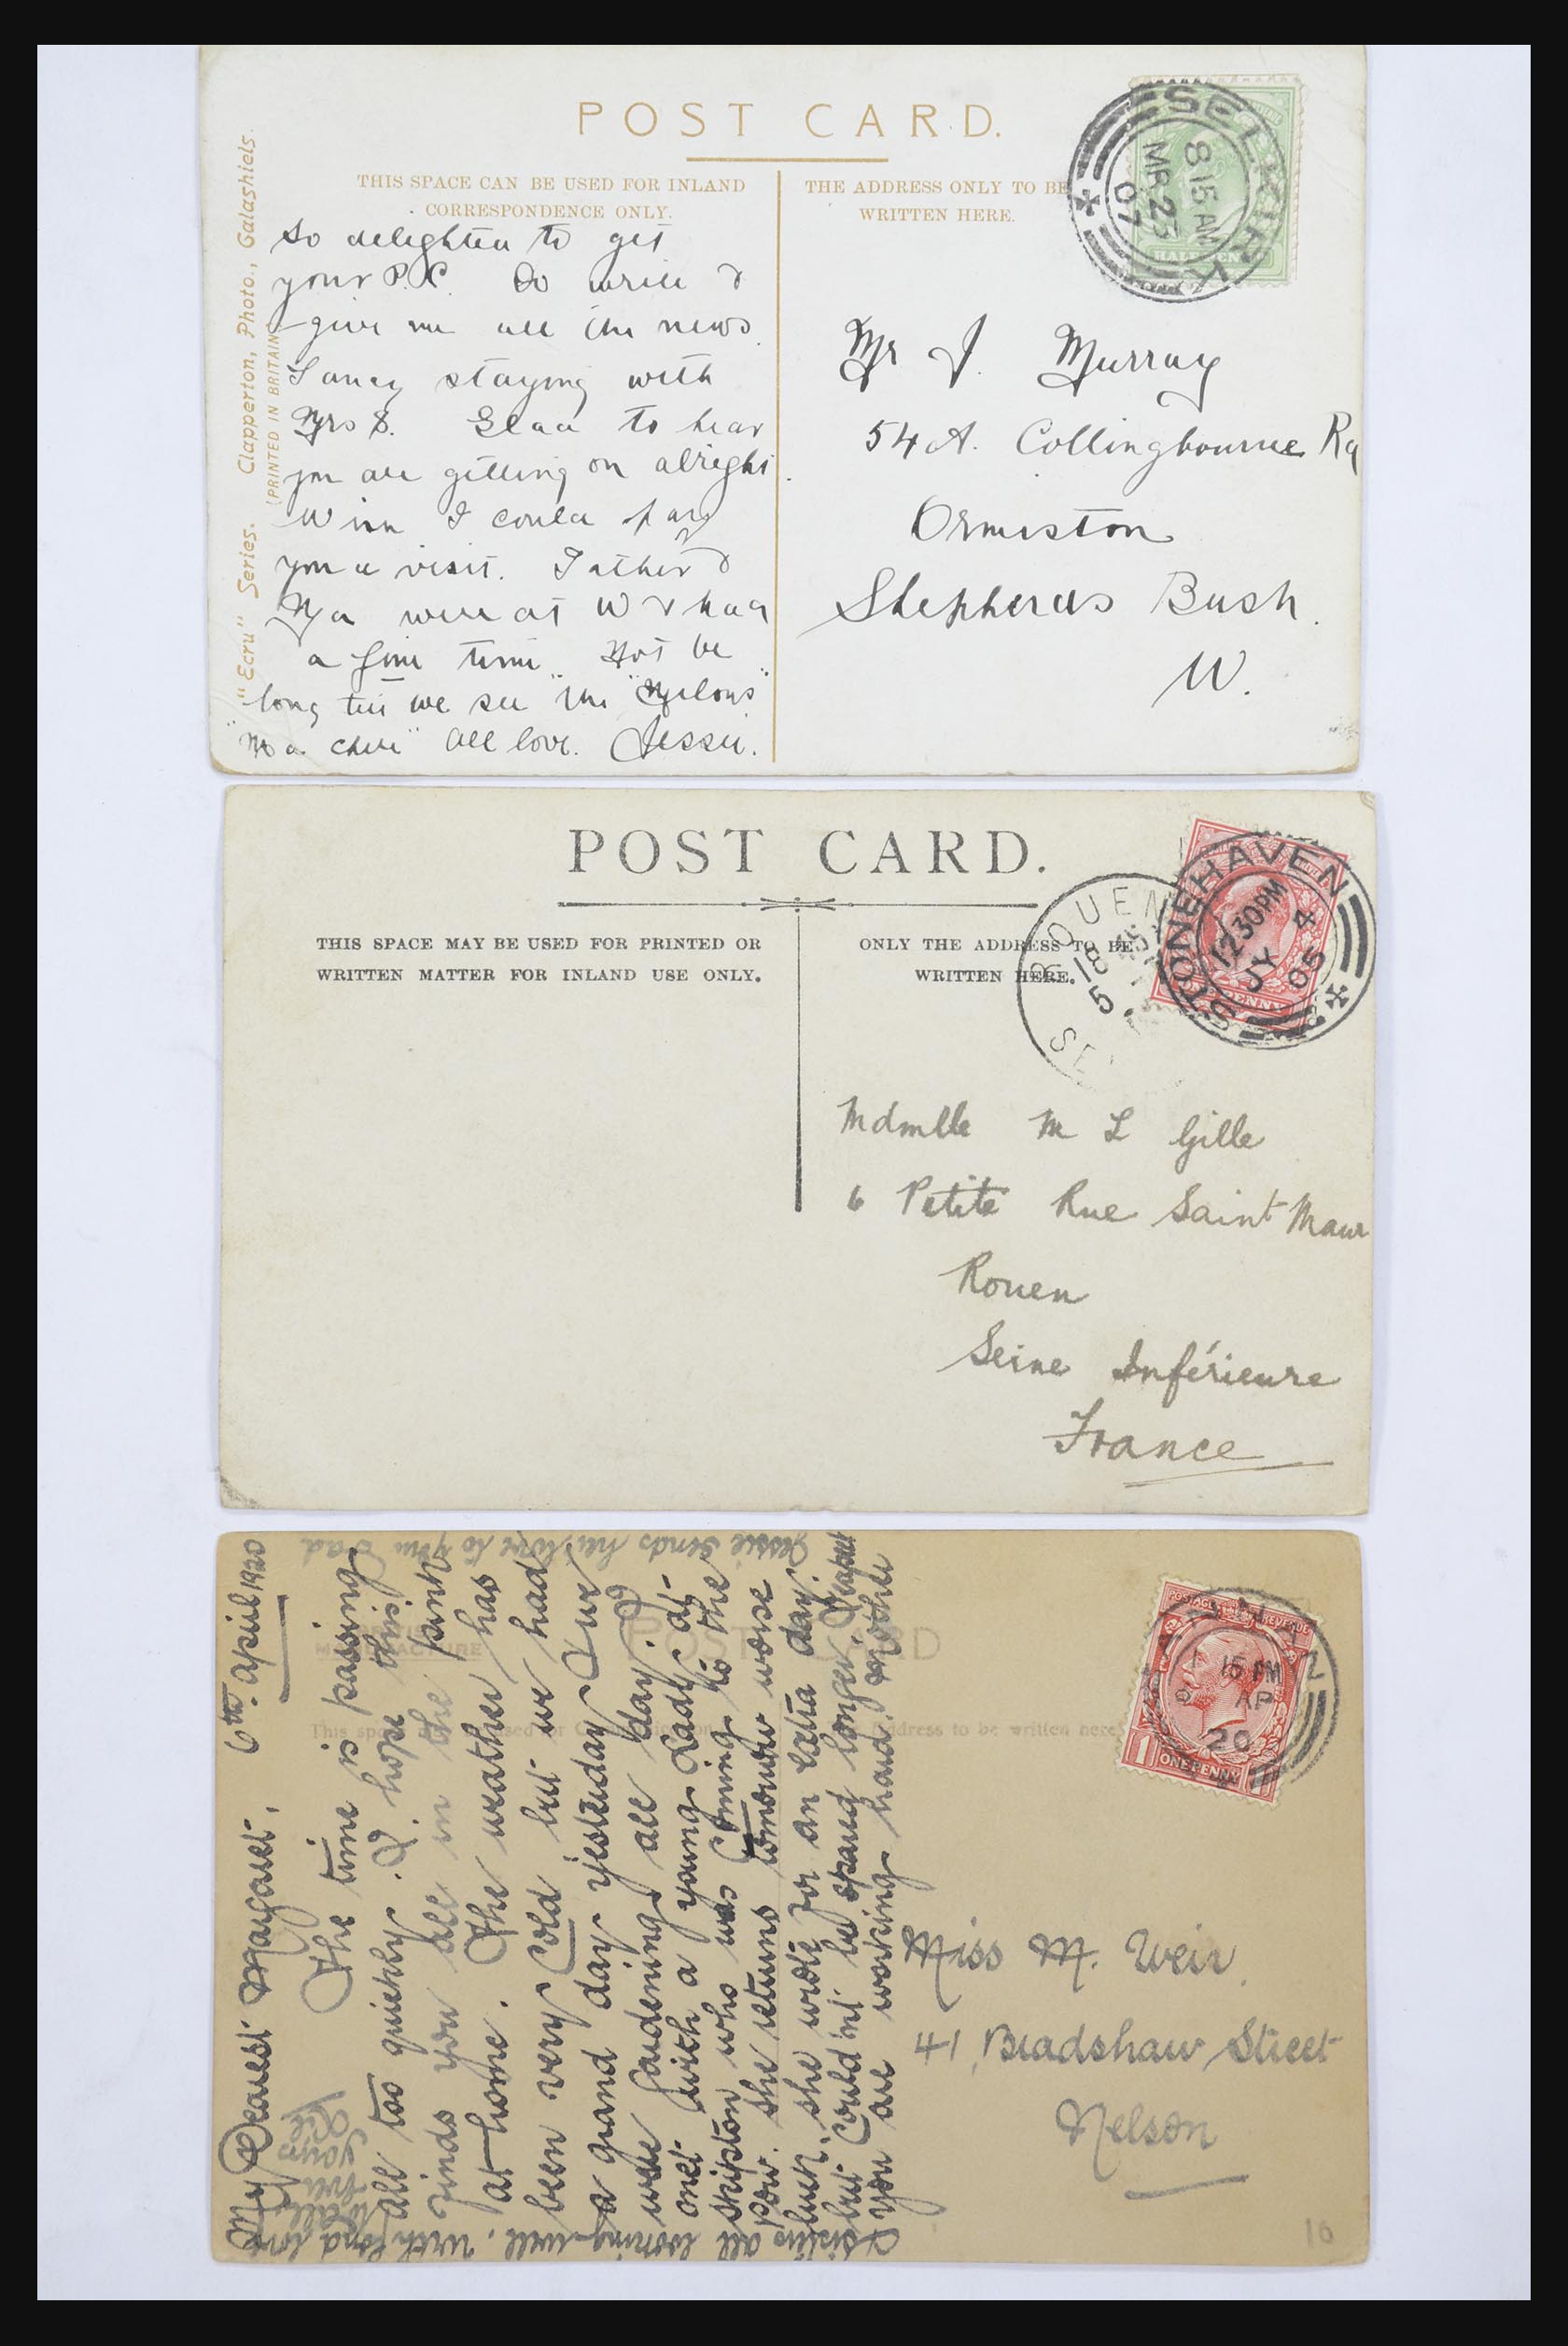 POST CARD.
THIS SPACE CAN BE USED FOR INLAND
CORRESPONDENCE ONLY.
THE ADDRESS ONLY TO BE
WRITTEN HERE.
"Ecru" Series. Clapperton, Photo., Galashiels.
(PRINTED IN BRITAIN)
SELKIRK
8 15 AM
MR 23
07
So delighted to get
your P.C. Do write &
give me all the news.
Fancy staying with
Mrs S. Glad to hear
you are getting on alright.
Wish I could pay
you a visit. Father &
Ma were at W & had
a fine time. Not be
long till we see the
"Ma chere" All love. Jessie.
Mr J. Murray
54 A. Collingbourne Rd
Ormiston
Shepherds Bush.
W.
POST CARD.
THIS SPACE MAY BE USED FOR PRINTED OR
WRITTEN MATTER FOR INLAND USE ONLY.
ONLY THE ADDRESS TO BE
WRITTEN HERE.
ROUEN
STONEHAVEN
12 30 PM
JY 4
05
Mdmlle M L Gille
6 Petite Rue Saint Maur
Rouen
Seine Inférieure
France
POST CARD
6th April 1920
My Dearest Margaret,
The time is passing
all too quickly. I hope this
finds you all in the pink
at home. The weather has
been very Cold but we had
a grand day yesterday & we
were gardening all day. I
met with a young Lady at
Skipton who was Coming to the
she returns tomorrow worse
luck, she wrote for an extra day
but Could'nt be spared longer.
you are working hard. Mother
& sisters all looking well. With fond love
to all
Jessie sends her love to you
POSTAGE REVENUE
15 PM
AP
20
ONE PENNY
Miss M. Weir.
41, Bradshaw Street
Nelson
10